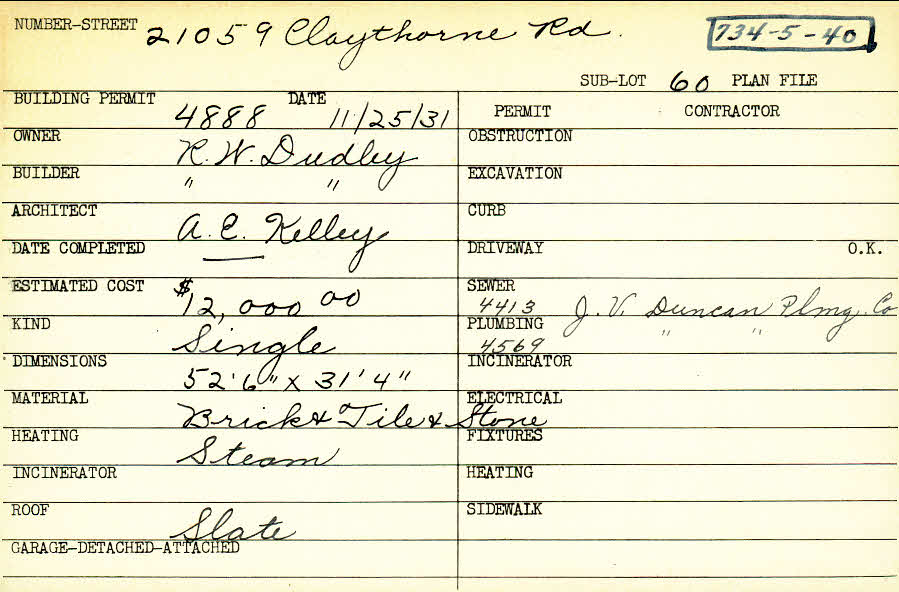 NUMBER-STREET 21059 Claythorne Rd. 734-5-40
SUB-LOT 60 PLAN FILE
BUILDING PERMIT 4888 DATE 11/25/31
PERMIT CONTRACTOR
OWNER R. W. Dudley
OBSTRUCTION
BUILDER " "
EXCAVATION
ARCHITECT A. C. Kelley
CURB
DATE COMPLETED —
DRIVEWAY O.K.
ESTIMATED COST $12,000 00
SEWER 4413 J. V. Duncan Plmg. Co
KIND Single
PLUMBING 4569 " "
DIMENSIONS 52'6" x 31'4"
INCINERATOR
MATERIAL Brick & Tile & Stone
ELECTRICAL
HEATING Steam
FIXTURES
INCINERATOR
HEATING
ROOF Slate
SIDEWALK
GARAGE-DETACHED-ATTACHED